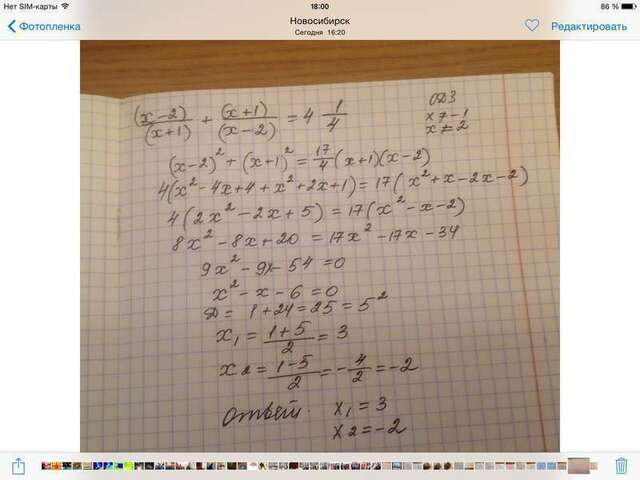 Нет SIM-карты 18:00 86 %
Фотопленка Новосибирск Редактировать
Сегодня 16:20
(x-2)/(x+1) + (x+1)/(x-2) = 4 1/4
ОДЗ
x ≠ -1
x ≠ 2
(x-2)² + (x+1)² = 17/4 (x+1)(x-2)
4(x²-4x+4+x²+2x+1) = 17(x²+x-2x-2)
4(2x²-2x+5) = 17(x²-x-2)
8x²-8x+20 = 17x²-17x-34
9x²-9x-54=0
x²-x-6=0
D = 1+24=25=5²
x₁ = (1+5)/2 = 3
x2 = (1-5)/2 = -4/2 = -2
Ответ. x₁ = 3
x2=-2